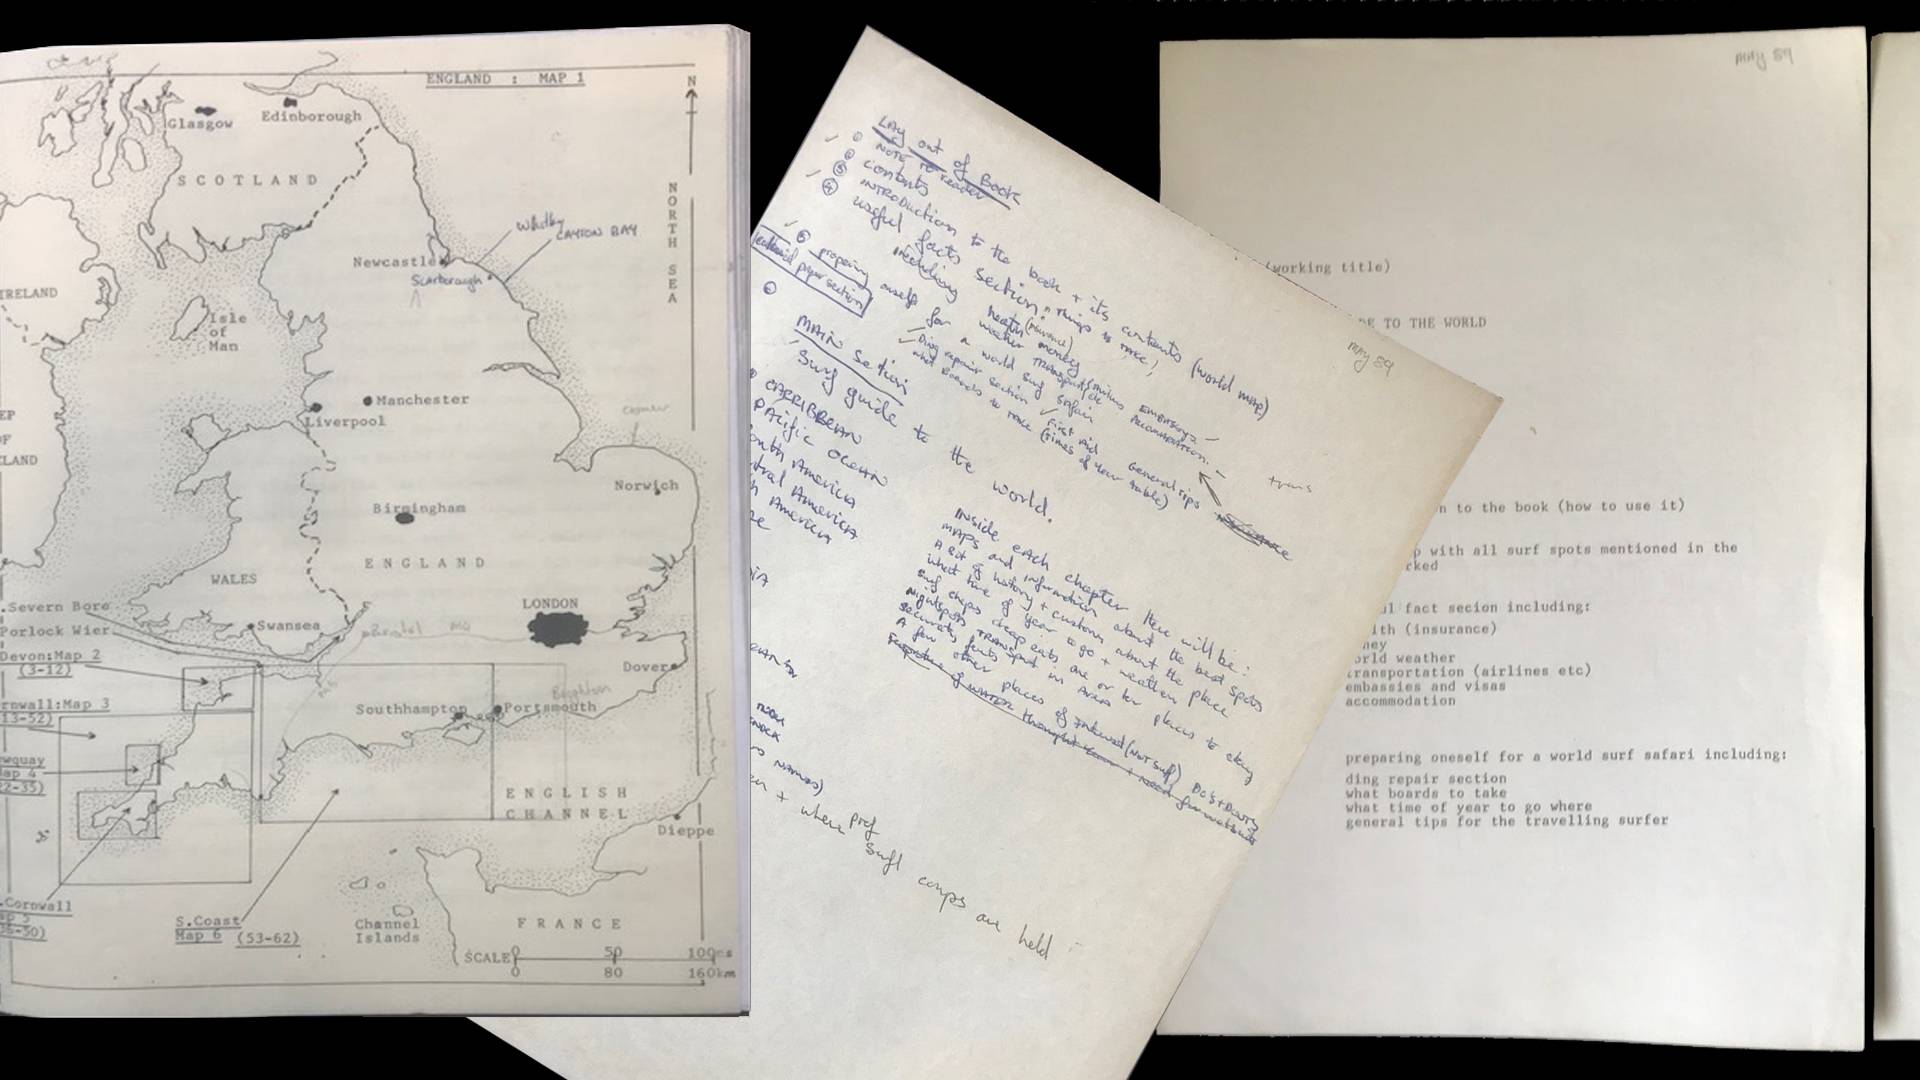 ENGLAND : MAP 1
N
Glasgow
Edinborough
SCOTLAND
NORTH SEA
Whitby
CAYTON BAY
Newcastle
Scarborough
IRELAND
Isle
of
Man
Manchester
Liverpool
Cromer
Norwich
Birmingham
ENGLAND
WALES
LONDON
Severn Bore
Porlock Wier
Swansea
Bristol M4
M5
Devon:Map 2
(3-12)
Dover
Brighton
rnwall:Map 3
13-52)
Southhampton
Portsmouth
wquay
ap 4
22-35)
ENGLISH
CHANNEL
Dieppe
.Cornwall
ap 5
36-50)
S.Coast
Map 6 (53-62)
Channel
Islands
FRANCE
SCALE 0 50 100ms
0 80 160km
MAY 89
LAY out of Book
① NOTE TO reader
② Contents
③ INTRODUCTION to the book + its contents (world map)
④ useful facts section, "Things to take,
including health (insurance) money
weather transport/airlines embassys
Accommodation.
⑤ preparing oneself for a world surf safari
Ding repair section First Aid general tips
what Boards to take (times of year table)
trans
coloured paper section
⑥ MAIN Section
Surf guide to the world.
CARRIBBEAN
PACIFIC OCEAN
outh America
ntral America
h America
Inside each chapter there will be:
MAPS and information about the best spots
A bit of history + customs about the place
what time of year to go + weather
surf shops cheap eats one or two places to stay
nightspots TRANSPORT in Area
A few other places of interest (not surf) DO'S + DON'TS
NAMES)
+ where pref
surf comps are held
MAY 89
(working title)
DE TO THE WORLD
n to the book (how to use it)
p with all surf spots mentioned in the
rked
ul fact secion including:
lth (insurance)
ney
orld weather
transportation (airlines etc)
embassies and visas
accommodation
preparing oneself for a world surf safari including:
ding repair section
what boards to take
what time of year to go where
general tips for the travelling surfer